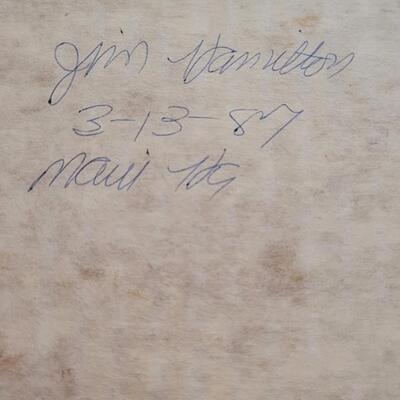 Jim Hamilton
3-13-87
Maui